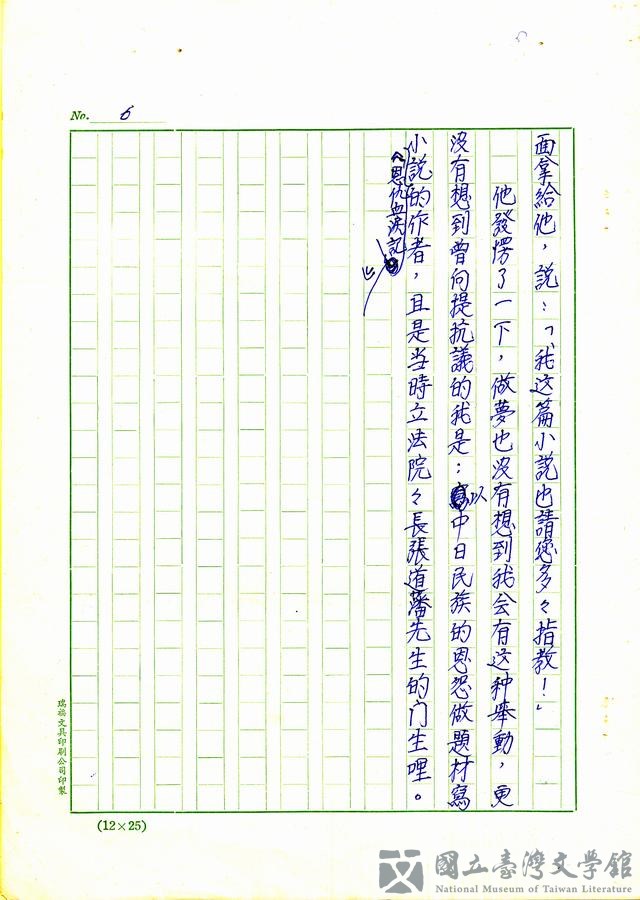 No. 6
面拿給他，說：「我这篇小說也請您多々指教！」
他發愣了一下，做夢也没有想到我会有这种舉動，更
没有想到曾向提抗議的我是：以中日民族的恩怨做題材寫
小說的作者，且是当時立法院々長張道藩先生的门生哩。
《恩仇血淚記》
瑞
文具印刷公司印製
(12×25)
國立臺灣文學館
National Museum of Taiwan Literature